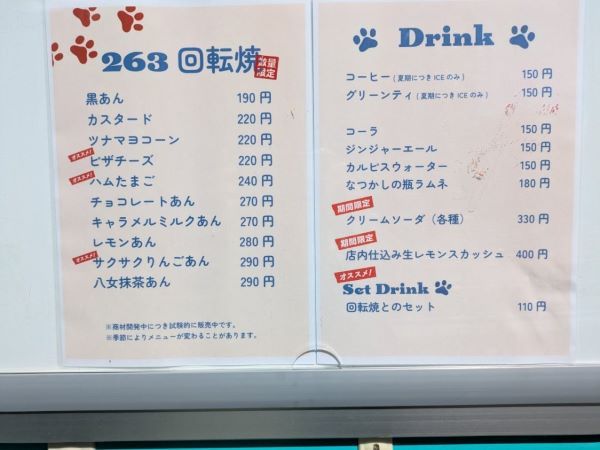 263 回転焼 数量限定
黒あん 190円
カスタード 220円
ツナマヨコーン 220円
オススメ! ピザチーズ 220円
オススメ! ハムたまご 240円
チョコレートあん 270円
キャラメルミルクあん 270円
レモンあん 280円
オススメ! サクサクりんごあん 290円
八女抹茶あん 290円
※商材開発中につき試験的に販売中です。
※季節によりメニューが変わることがあります。
Drink
コーヒー(夏期につきICEのみ) 150円
グリーンティ(夏期につきICEのみ) 150円
コーラ 150円
ジンジャーエール 150円
カルピスウォーター 150円
なつかしの瓶ラムネ 180円
期間限定
クリームソーダ(各種) 330円
期間限定
店内仕込み生レモンスカッシュ 400円
オススメ!
Set Drink
回転焼とのセット 110円